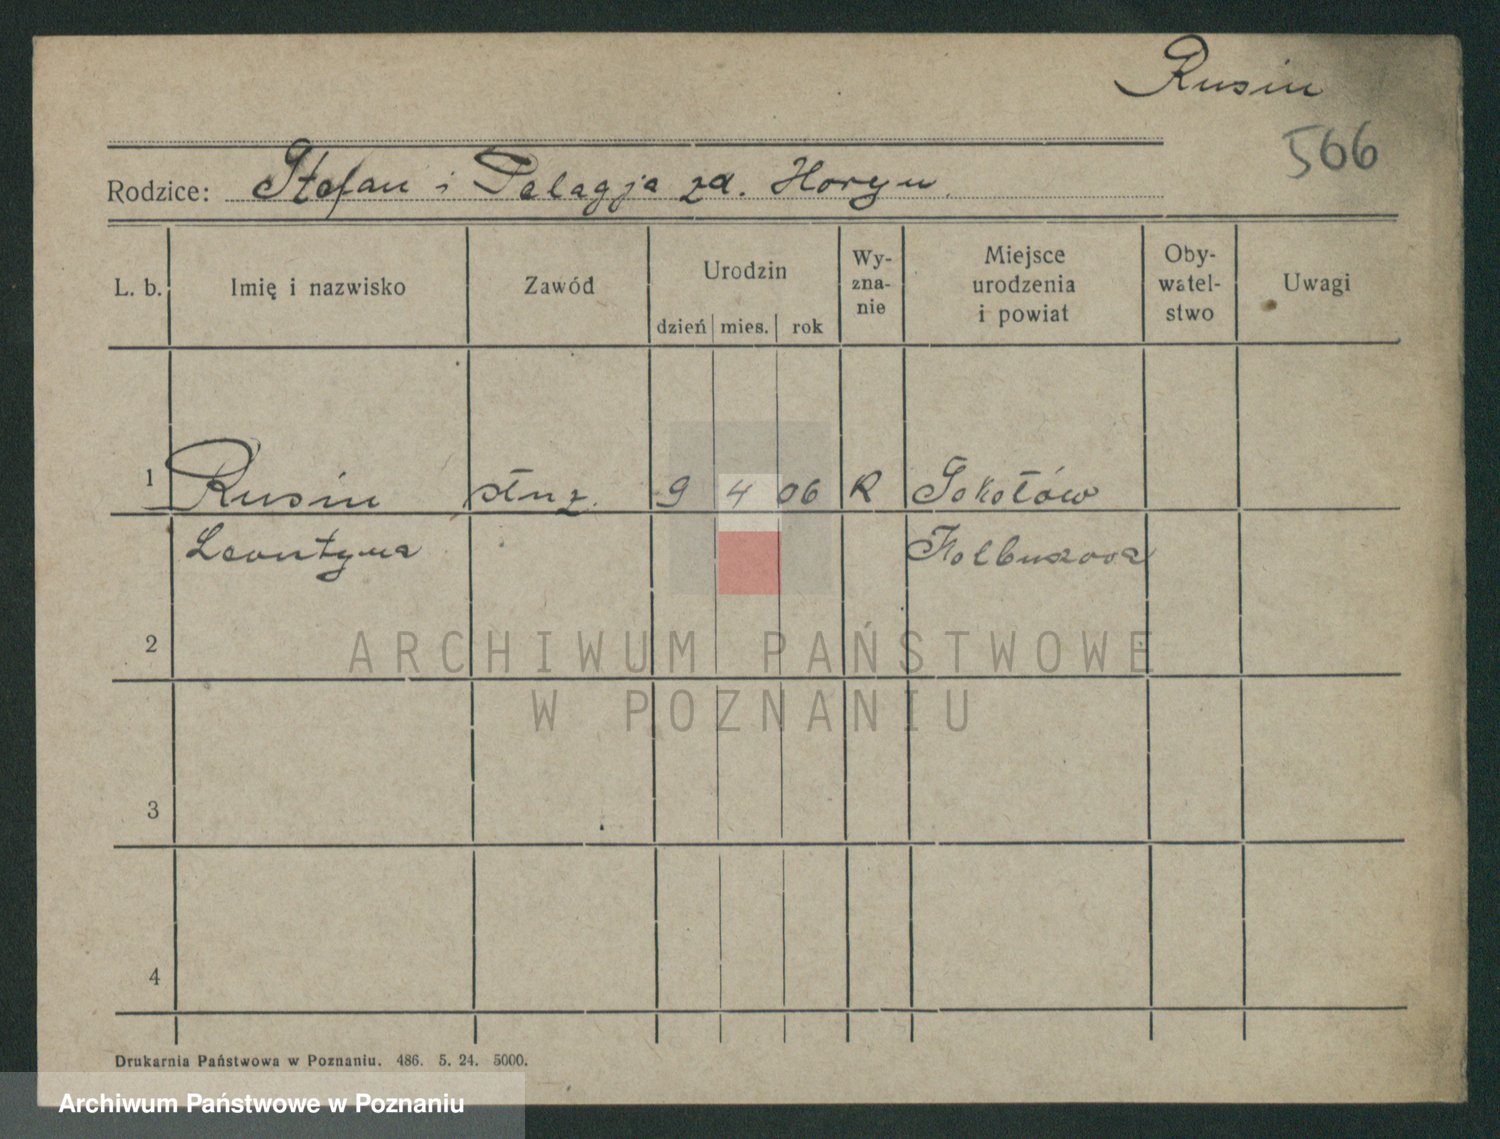 Rusin
566
Rodzice: Stefan i Pelagja zd. Horyn
L. b. Imię i nazwisko Zawód Urodzin dzień mies. rok Wy-zna-nie Miejsce urodzenia i powiat Oby-watel-stwo Uwagi
1 Rusin służ. 9 4 06 R Sokołów
Leontyna Kolbuszowa
2
ARCHIWUM PAŃSTWOWE
W POZNANIU
3
4
Drukarnia Państwowa w Poznaniu. 486. 5. 24. 5000.
Archiwum Państwowe w Poznaniu